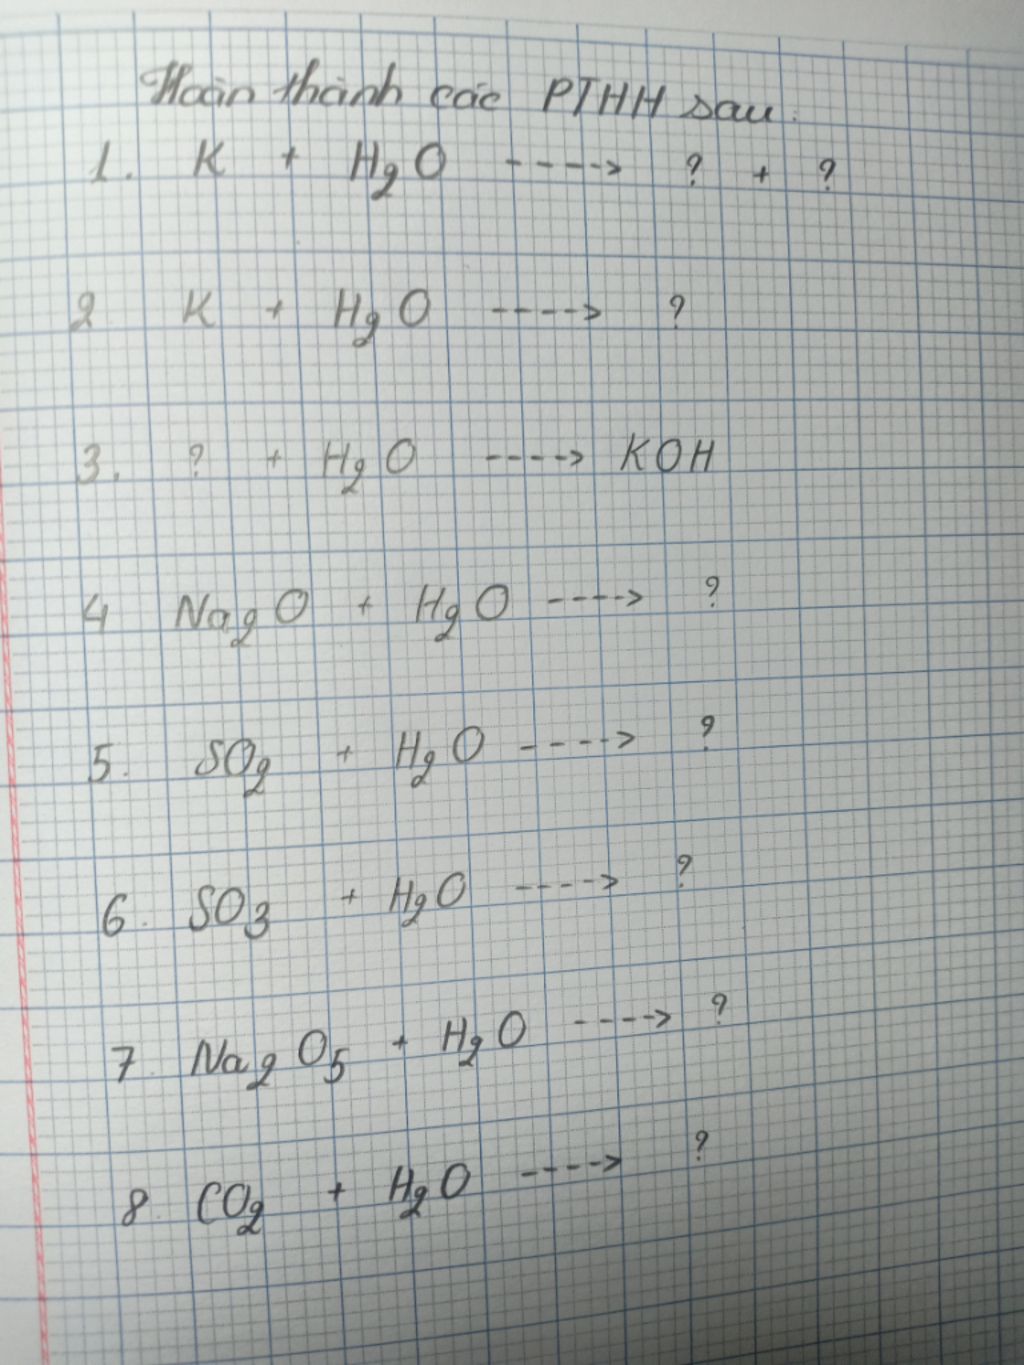 Hoàn thành các PTHH sau.
1. K + H₂O ----> ? + ?
2 K + H₂O ----> ?
3. ? + H₂O ----> KOH
4 Na₂O + H₂O ----> ?
5. SO₂ + H₂O ----> ?
6. SO₃ + H₂O ----> ?
7. Na₂O₅ + H₂O ----> ?
8. CO₂ + H₂O ----> ?